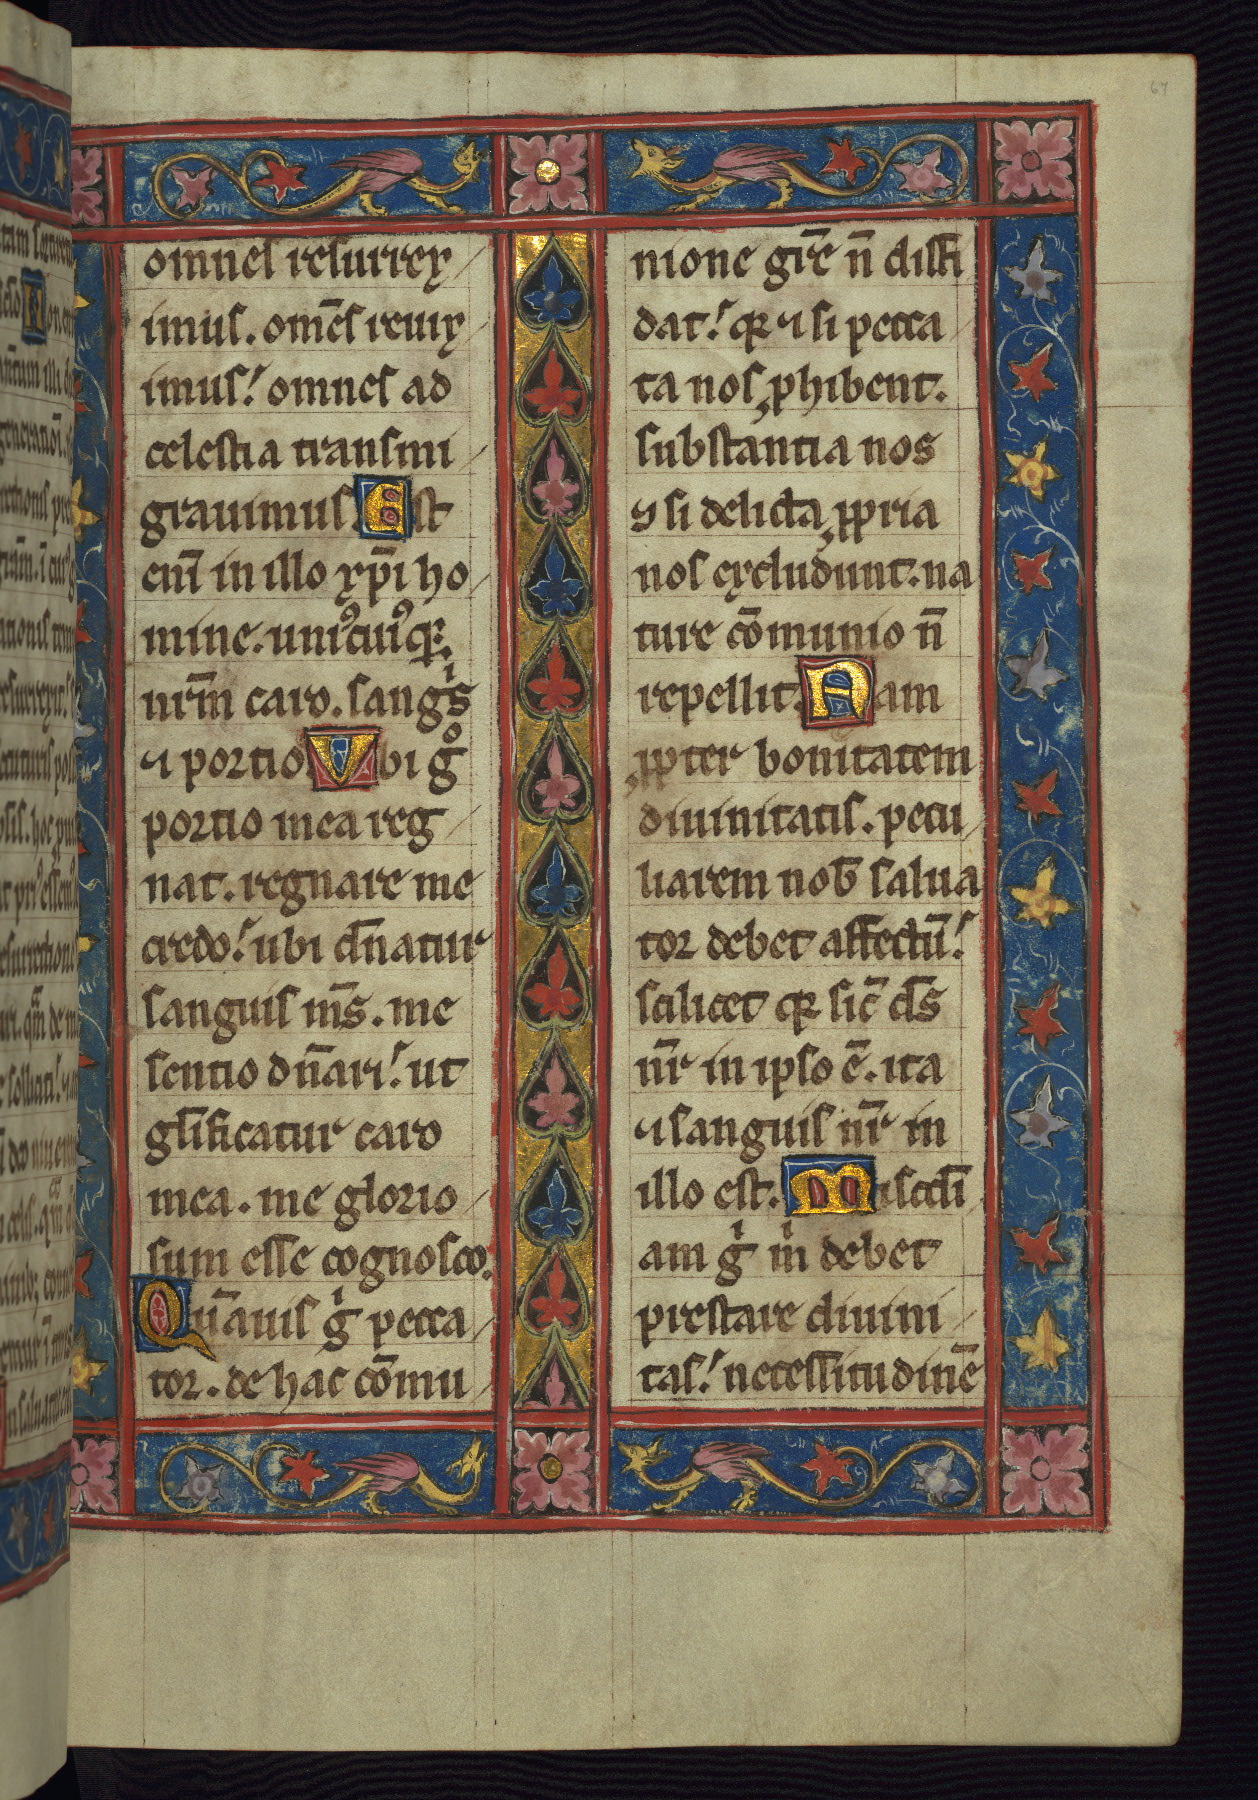 omnes resurrex
imus. om̄es reuix
imus: omnes ad
celestia transmi
grauimus. Est
enī in illo xp̄i ho
mine. uniꝰcuiꝰq;
nr̄m caro. sangⁱs
⁊ portio. Vbi gͦ
portio mea reg
nat. regnare me
credo: ubi dn̄atur
sanguis m̄s. me
sentio dn̄ari: ut
gl̄ificatur caro
mea. me glorio
sum esse cognosco.
Quāuis gⁱ pecca
tor. de hac cōmu
nione gr̄e n̄ diffi
dat: qꝛ ⁊ si pecca
ta nos ꝓhibent.
substantia nos
⁊ si delicta ꝓpria
nos excludunt. na
ture cōmunio n̄
repellit. Nam
ꝓpter bonitatem
diuinitatis. pecu
liarem nob̄ salua
tor debet affectū:
scilicet qꝛ sic̄ ds̄
nr̄ in ipso ē. ita
⁊ sanguis nr̄ in
illo est. Misc̄di
am gⁱ mⁱ debet
prestare diuini
tas: necessitudinē
67